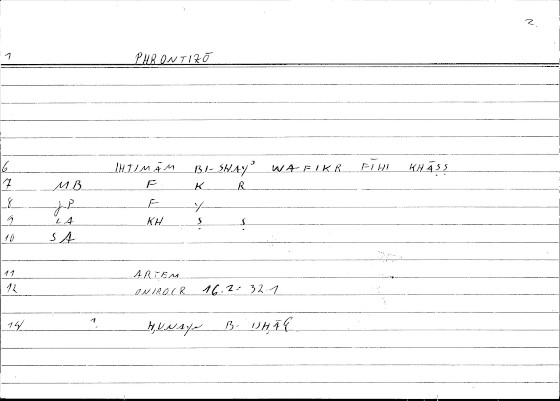 2.
1 PHRONTIZŌ
6 IHTIMĀM BI-SHAYʾ WAFIKR FĪHI KHĀṢṢ
7 MB F K R
8 JP F Y
9 LA KH Ṣ Ṣ
10 SA
11 ARTEM
12 ONIROCR 16.2 = 32 1
14 1. ḤUNAYN B. ISḤĀQ